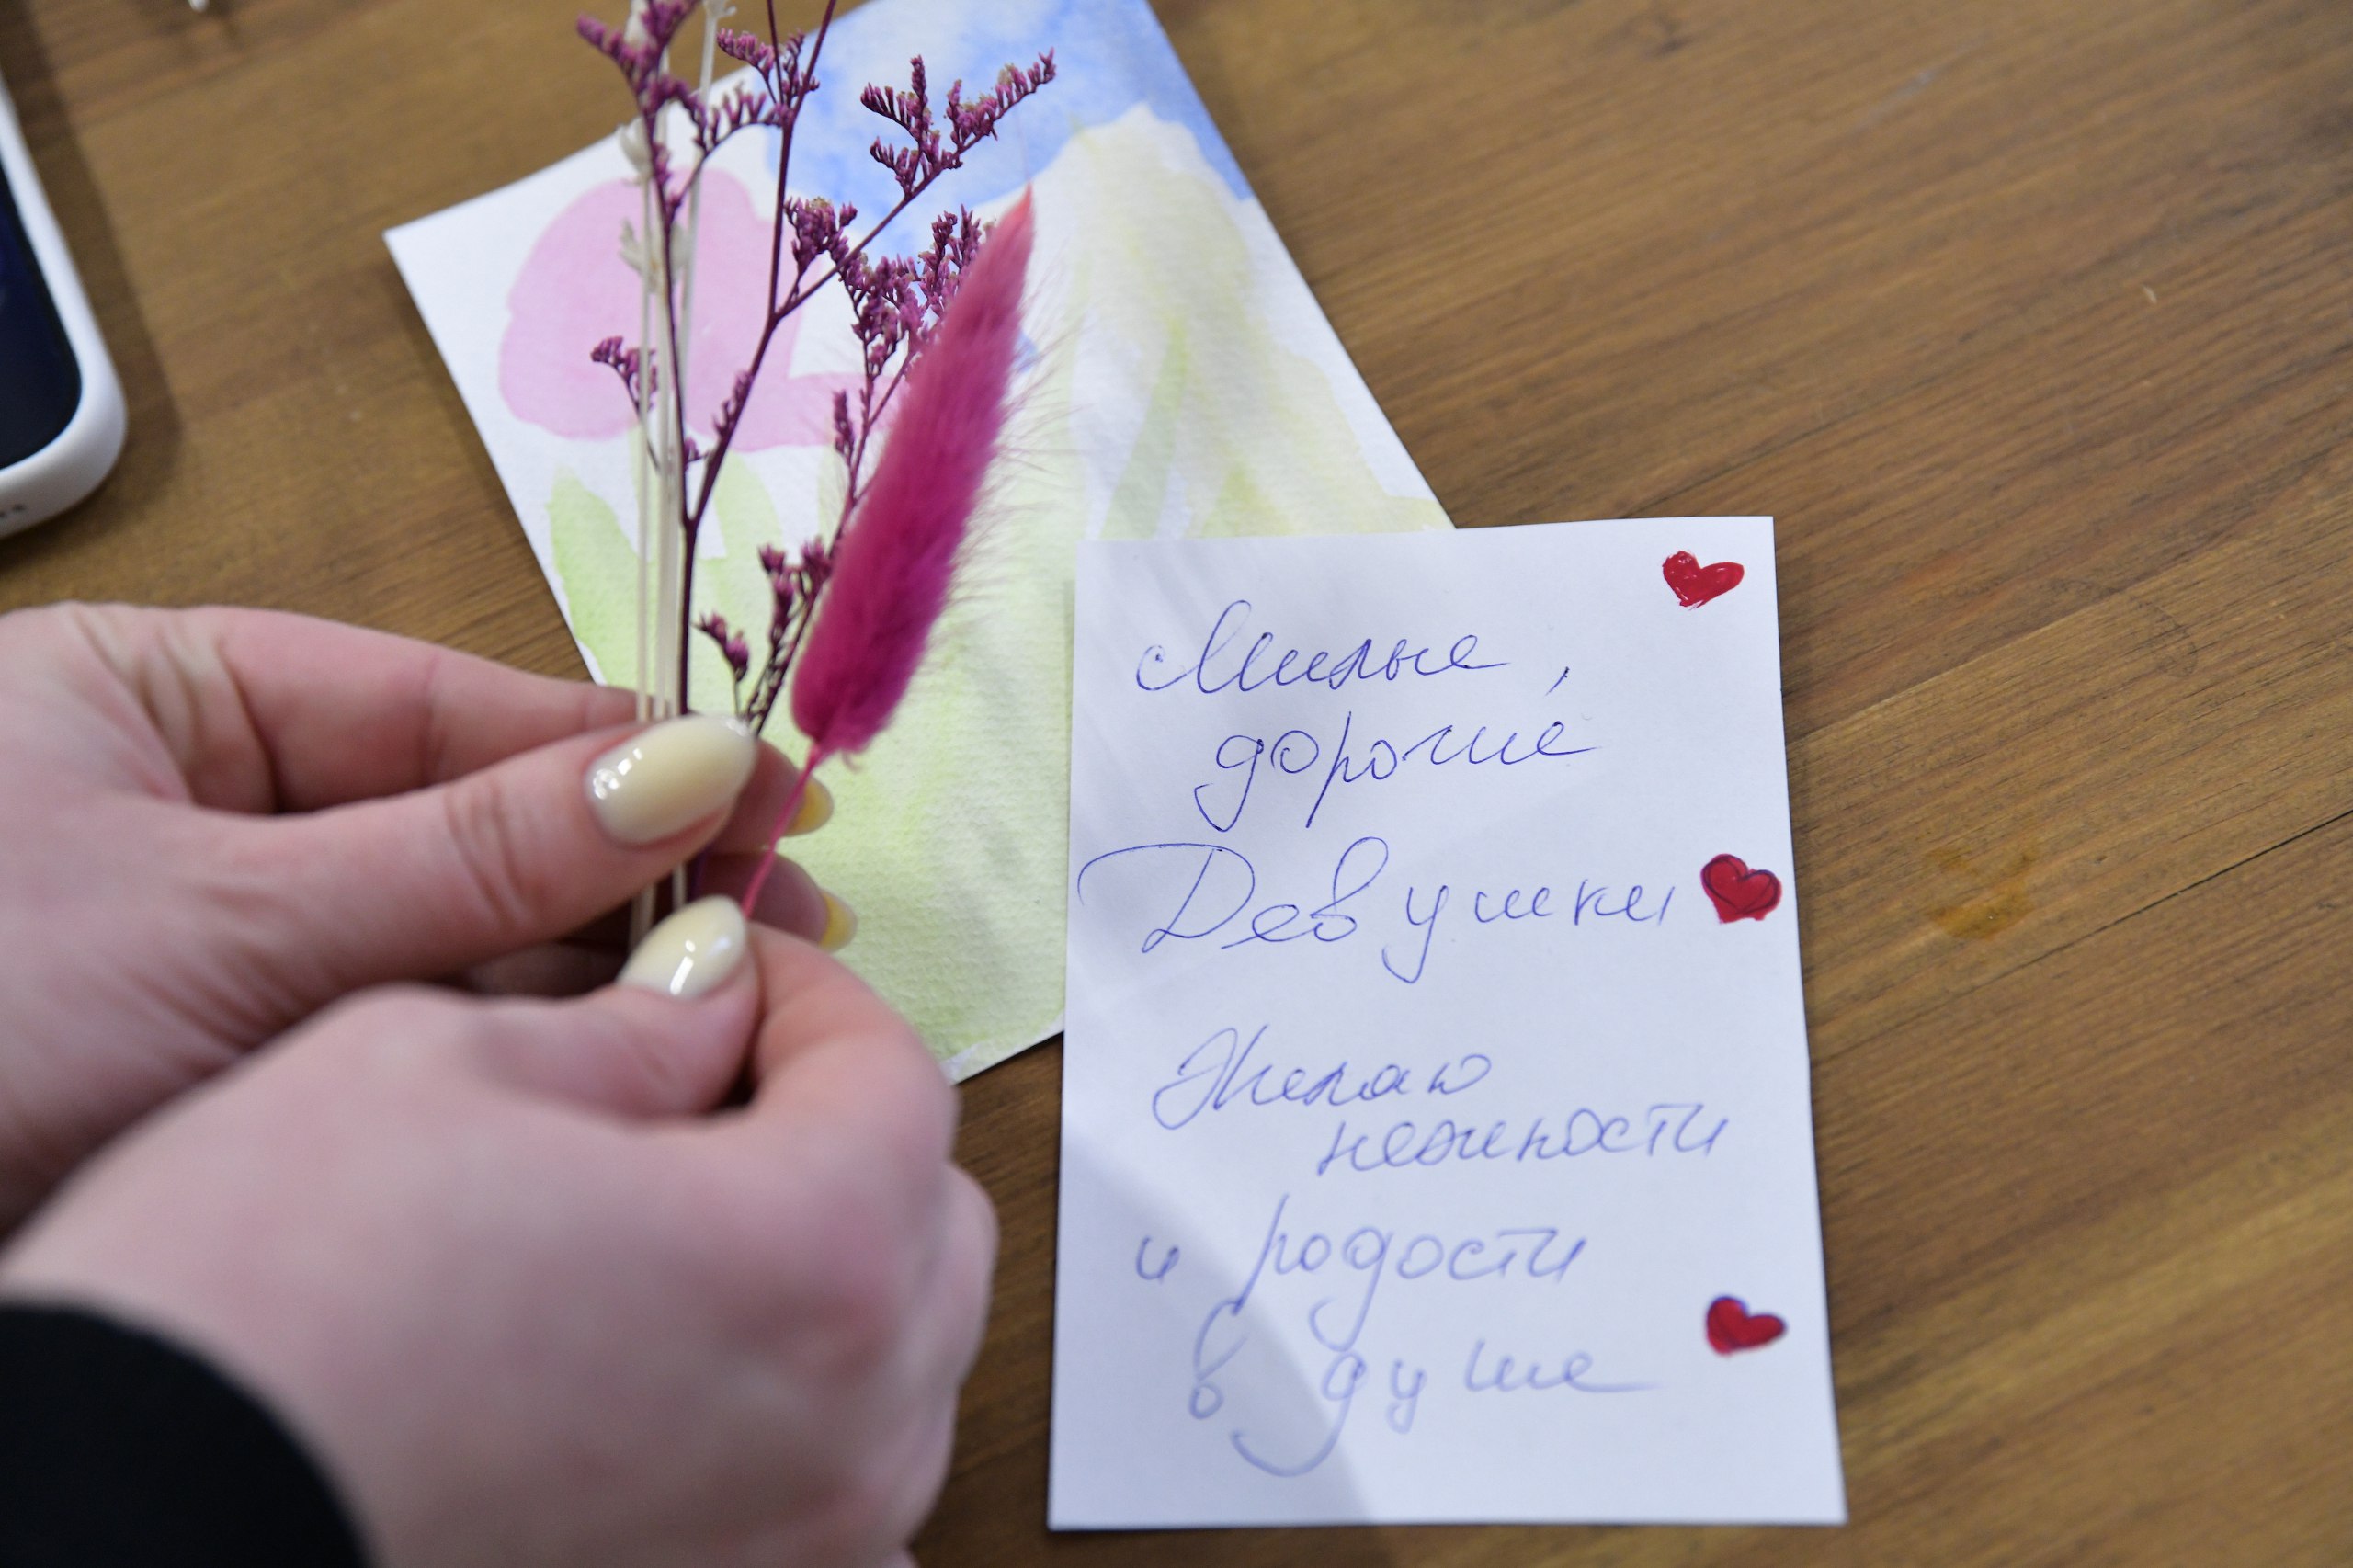 Милые,
дорогие
Девушки
Желаю
нежности
и радости
в душе